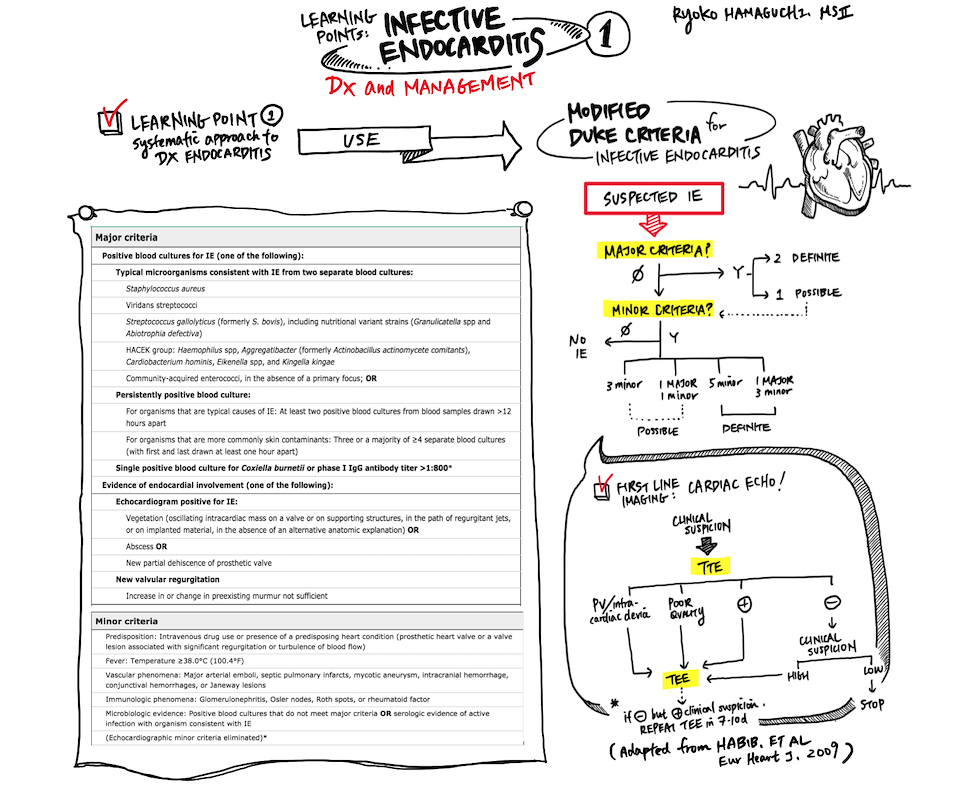 LEARNING POINTS:
INFECTIVE ENDOCARDITIS
1
DX and MANAGEMENT
RYOKO HAMAGUCHI, MSII
LEARNING POINT 1
systematic approach to
DX ENDOCARDITIS
USE
MODIFIED
DUKE CRITERIA for
INFECTIVE ENDOCARDITIS
Major criteria
Positive blood cultures for IE (one of the following):
Typical microorganisms consistent with IE from two separate blood cultures:
Staphylococcus aureus
Viridans streptococci
Streptococcus gallolyticus (formerly S. bovis), including nutritional variant strains (Granulicatella spp and
Abiotrophia defectiva)
HACEK group: Haemophilus spp, Aggregatibacter (formerly Actinobacillus actinomycete comitants),
Cardiobacterium hominis, Eikenella spp, and Kingella kingae
Community-acquired enterococci, in the absence of a primary focus; OR
Persistently positive blood culture:
For organisms that are typical causes of IE: At least two positive blood cultures from blood samples drawn >12
hours apart
For organisms that are more commonly skin contaminants: Three or a majority of ≥4 separate blood cultures
(with first and last drawn at least one hour apart)
Single positive blood culture for Coxiella burnetii or phase I IgG antibody titer >1:800*
Evidence of endocardial involvement (one of the following):
Echocardiogram positive for IE:
Vegetation (oscillating intracardiac mass on a valve or on supporting structures, in the path of regurgitant jets,
or on implanted material, in the absence of an alternative anatomic explanation) OR
Abscess OR
New partial dehiscence of prosthetic valve
New valvular regurgitation
Increase in or change in preexisting murmur not sufficient
Minor criteria
Predisposition: Intravenous drug use or presence of a predisposing heart condition (prosthetic heart valve or a valve
lesion associated with significant regurgitation or turbulence of blood flow)
Fever: Temperature ≥38.0°C (100.4°F)
Vascular phenomena: Major arterial emboli, septic pulmonary infarcts, mycotic aneurysm, intracranial hemorrhage,
conjunctival hemorrhages, or Janeway lesions
Immunologic phenomena: Glomerulonephritis, Osler nodes, Roth spots, or rheumatoid factor
Microbiologic evidence: Positive blood cultures that do not meet major criteria OR serologic evidence of active
infection with organism consistent with IE
(Echocardiographic minor criteria eliminated)*
SUSPECTED IE
MAJOR CRITERIA?
Ø
Y
2 DEFINITE
1 POSSIBLE
MINOR CRITERIA?
Ø
Y
NO
IE
3 minor
1 MAJOR
1 minor
5 minor
1 MAJOR
3 minor
POSSIBLE
DEFINITE
FIRST LINE
IMAGING: CARDIAC ECHO!
CLINICAL
SUSPICION
TTE
PV/intra-
cardiac device
POOR
QUALITY
⊕
⊖
CLINICAL
SUSPICION
HIGH
LOW
STOP
TEE
* if ⊖ but ⊕ clinical suspicion.
REPEAT TEE in 7-10d
(Adapted from HABIB, ET AL
Eur Heart J. 2009)